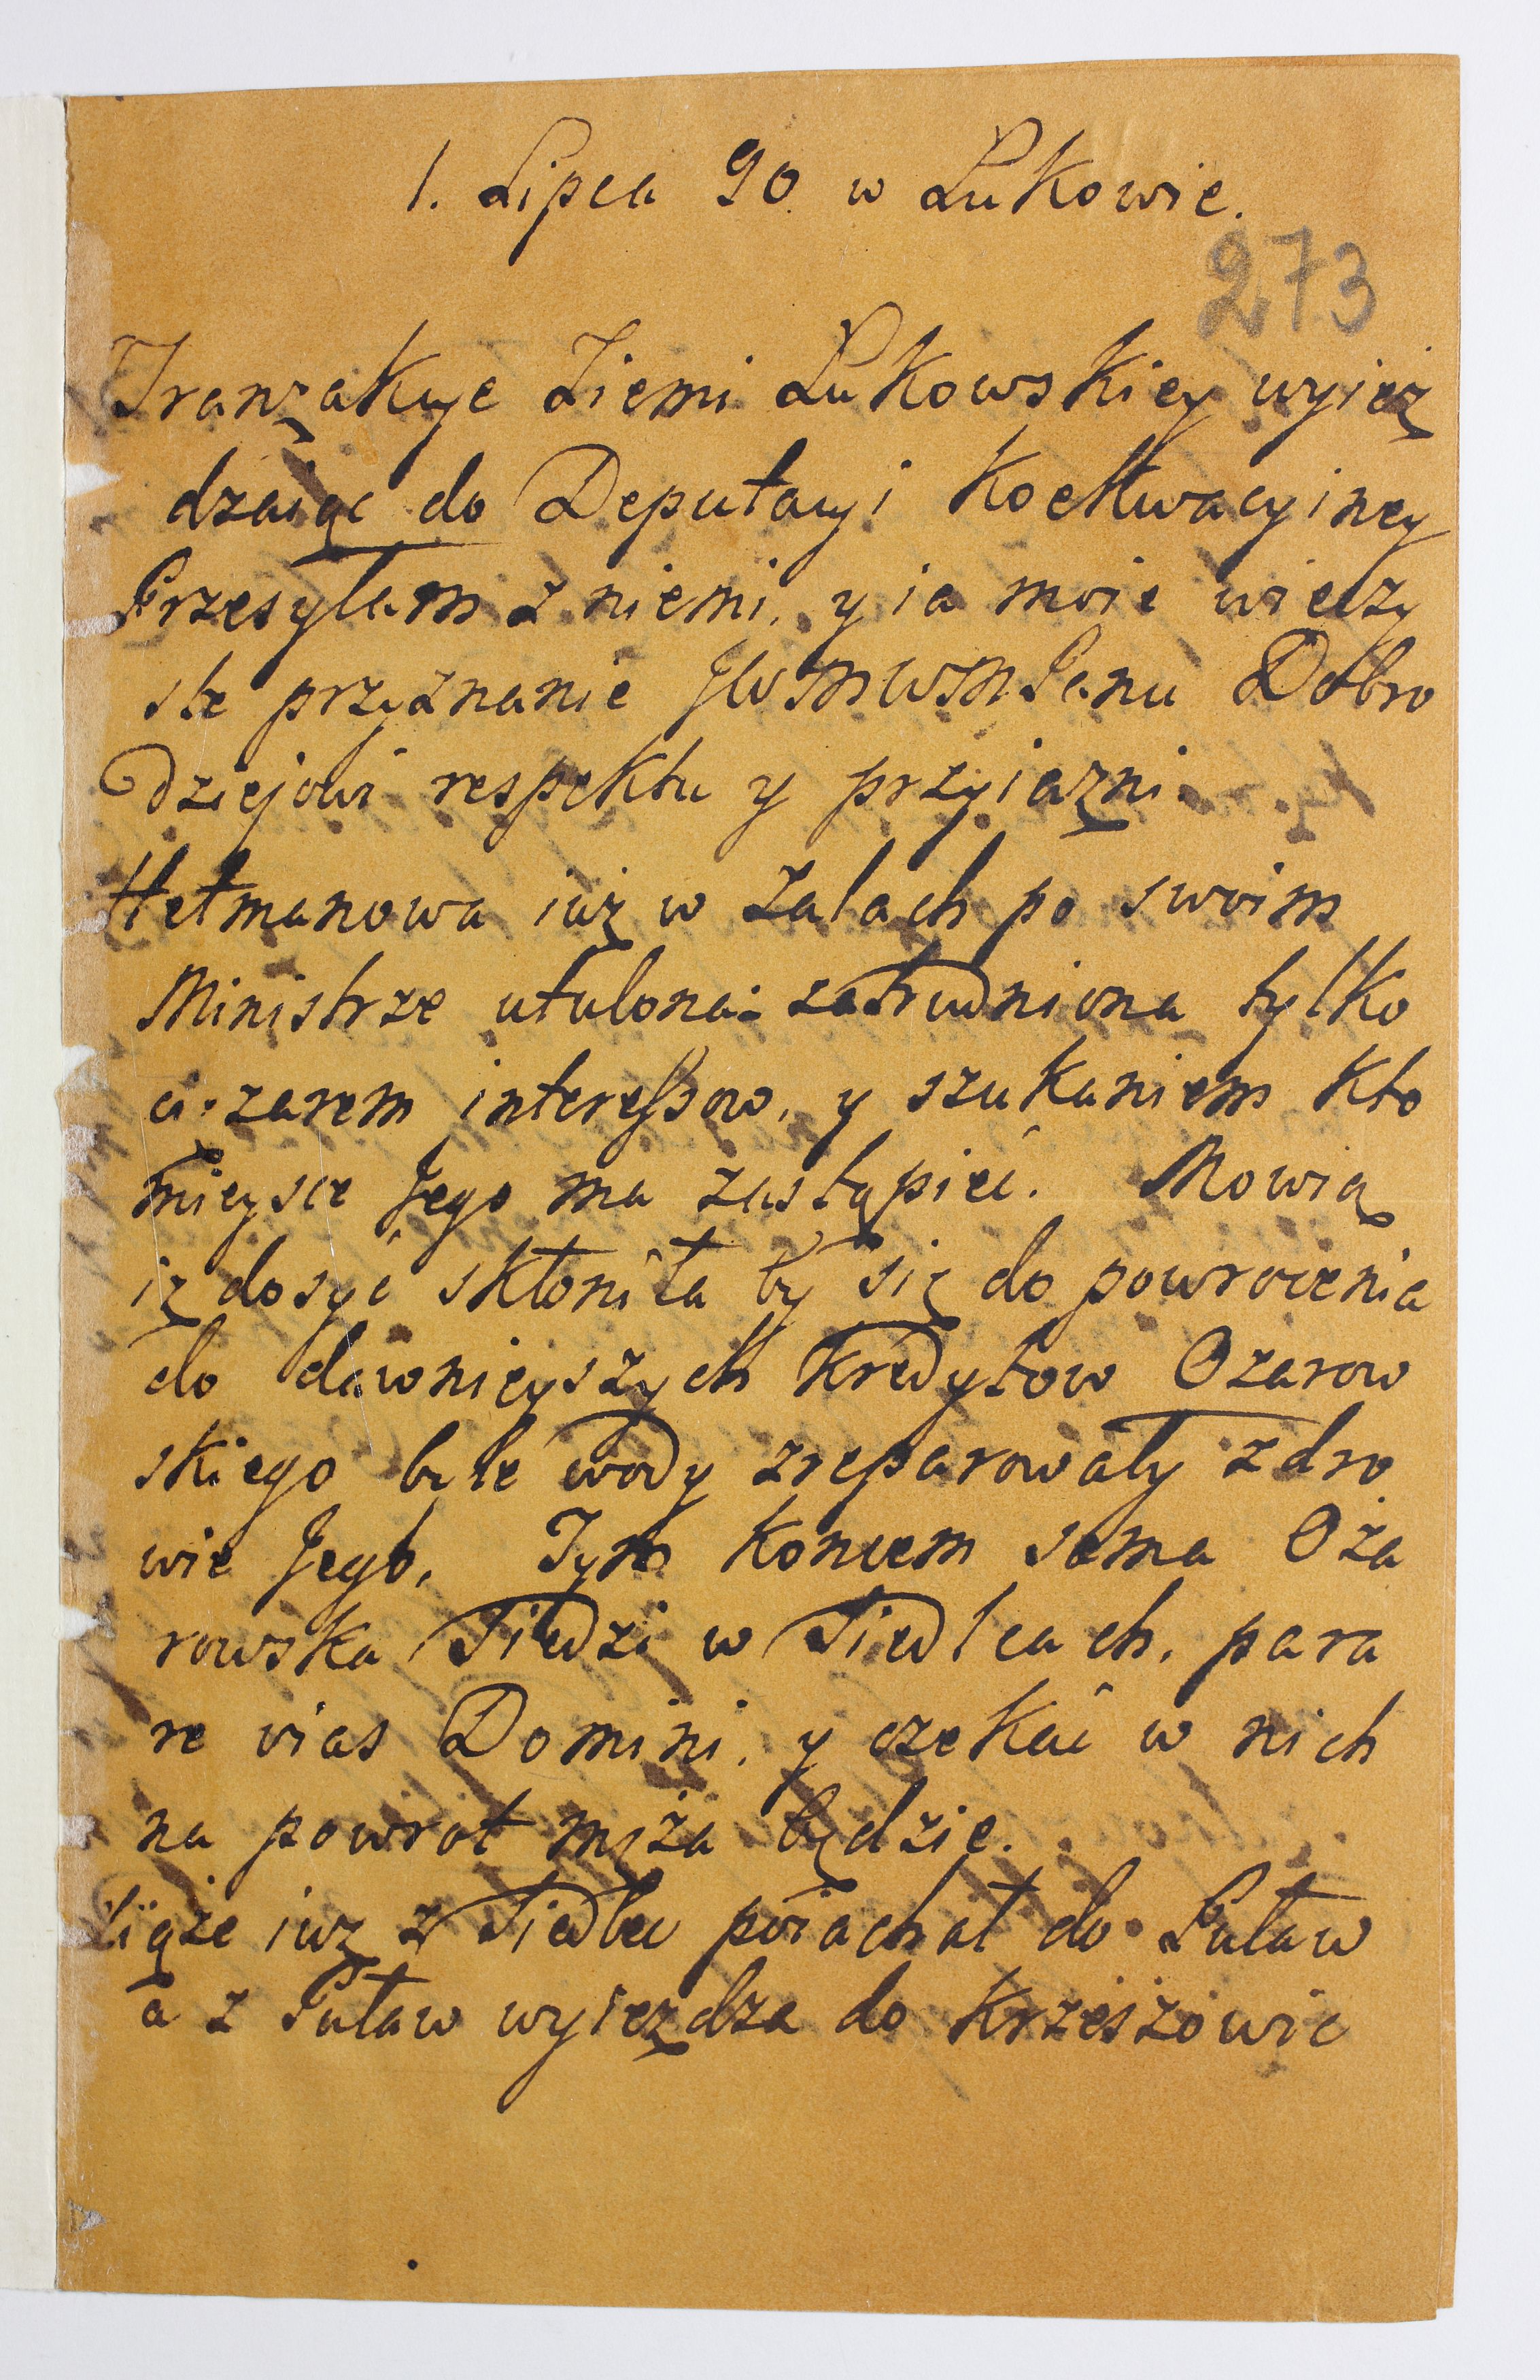 1. Lipca 90 w Łukowie.
273
Tranzakcye Ziemi Łukowskiey wyież
dzaiąc do Deputacyi Koekwacyiney
Przesyłam z niemi, y ia moie wieczy
ste przyznanie JWMWMPanu Dobro
dziejowi respektu y przyiazni.
Hetmanowa iuż w zalach po swoim
Ministrze utulona: zatrudniona tylko
cięzarem interessow, y szukaniem kto
mieysce Jego ma zastąpić. Mowią
iż dosyć skłoniła by się do powrocenia
do dawnieyszych kredytow Ozarow
skiego byle wody zreparowały zdro
wie Jego. Tym koncem sama Oża
rowska Siedzi w Siedlcach, para
re vias Domini, y czekać w nich
na powrot męża będzie.
Xiąże iuż z Siedlec poiachał do Puław
a z Puław wyiezdza do Krzeszowic